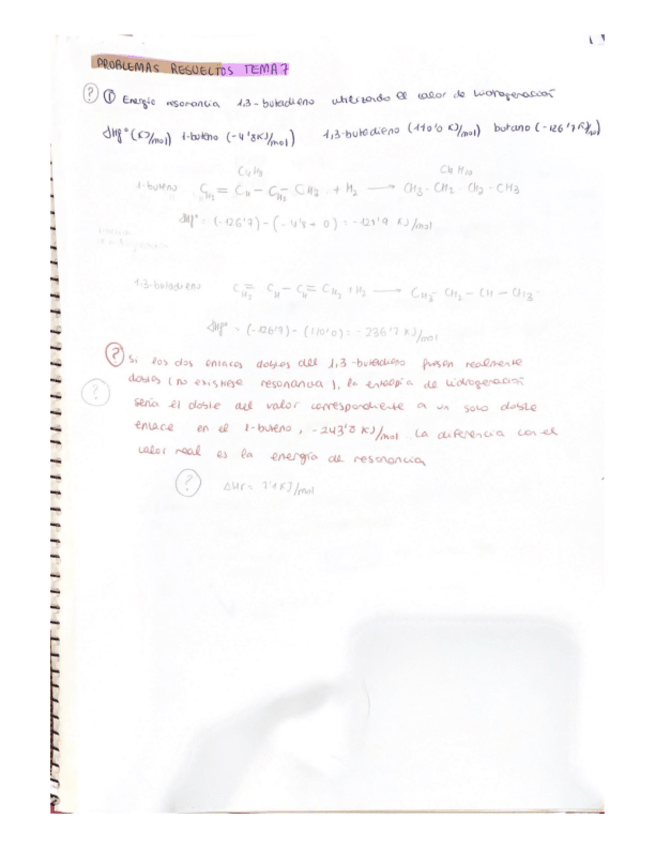 PROBLEMAS RESUELTOS TEMA 7
? ① Energía resonancia 1,3-butadieno utilizando el calor de hidrogenación
ΔHf° (KJ/mol) 1-buteno (-4'8KJ/mol) 1,3-butadieno (110'0 KJ/mol) butano (-126'7 KJ/mol)
C4H8 C4H10
1-buteno CH2 = CH - CH2 - CH2 + H2 → CH3 - CH2 - CH2 - CH3
ΔHf° = (-126'7) - (-4'8 + 0) = -121'9 KJ/mol
1,3-butadieno CH2 = CH - CH = CH2 + H2 → CH3 - CH2 - CH - CH3
ΔHf° = (-126'7) - (110'0) = -236'7 KJ/mol
? Si los dos enlaces dobles del 1,3-butadieno fuesen realmente
dobles (no existiese resonancia), la entalpía de hidrogenación
? sería el doble del valor correspondiente a un solo doble
enlace en el 1-buteno, -243'8 KJ/mol. La diferencia con el
valor real es la energía de resonancia
? ΔHr = 7'1 KJ/mol